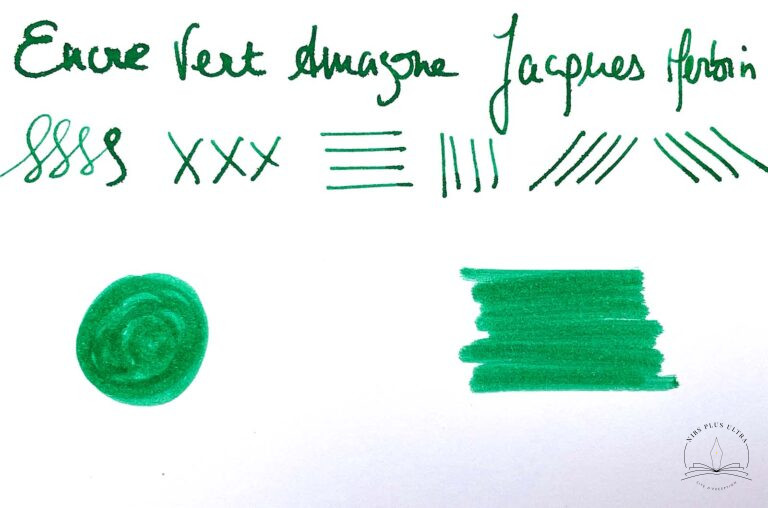 Encre Vert Amazone Jacques Herbin
XXX
NIBS PLUS ULTRA